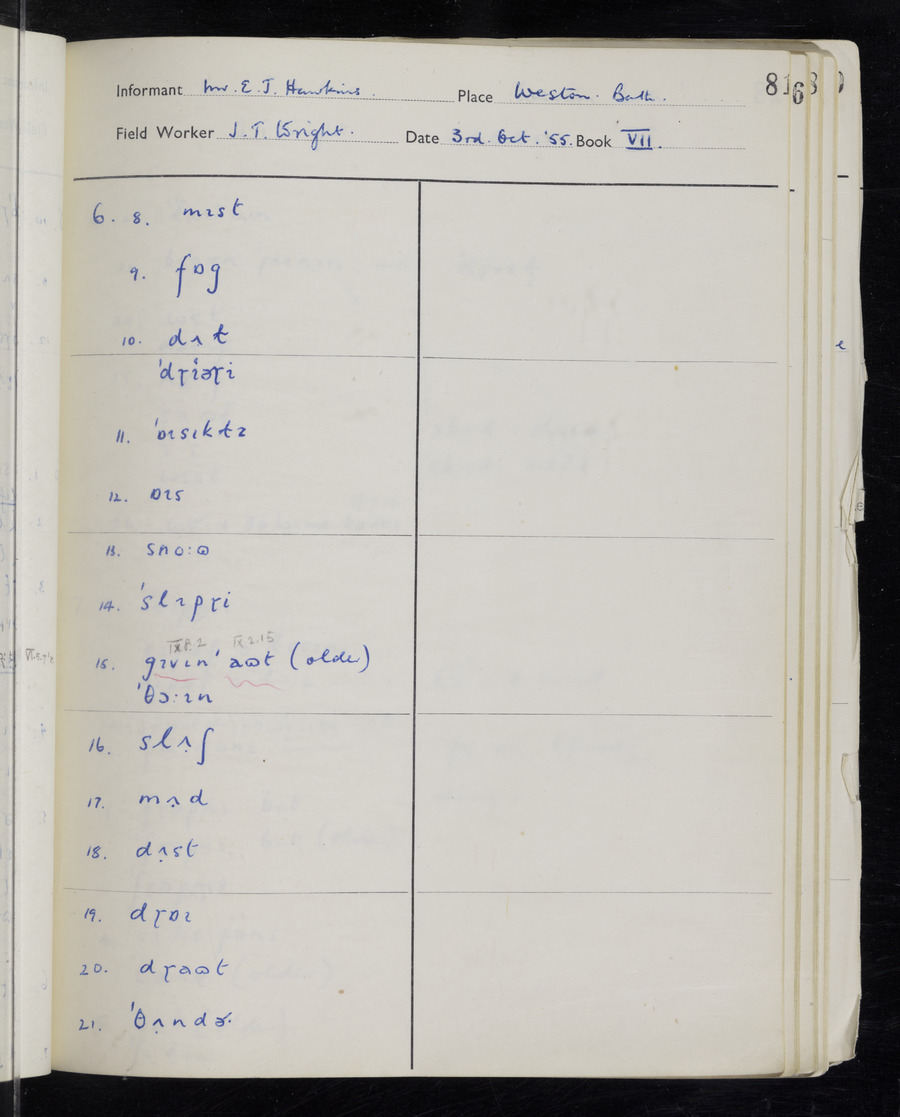 Informant Mr. E. J. Hawkins. Place Weston. Bath. 816
Field Worker J. T. Wright. Date 3rd. Oct. '55. Book VII.
6. 8. mɪst
9. fɒg
10. dʌt
ˈdɽiəɽi
11. ˈɒɪsɪktɪ
12. ɒɪs
13. sno:ɷ
14. ˈslɪpɽi
IX.8.2 IX.2.15
15. gɪvɪnˈ aɷt (older)
ˈθɔ:ɪn
16. slʌ̣ʃ
17. mʌ̣d
18. dʌ̣st
19. dɽɒɪ
20. dɽaɷt
21. ˈθʌ̣ndɚ